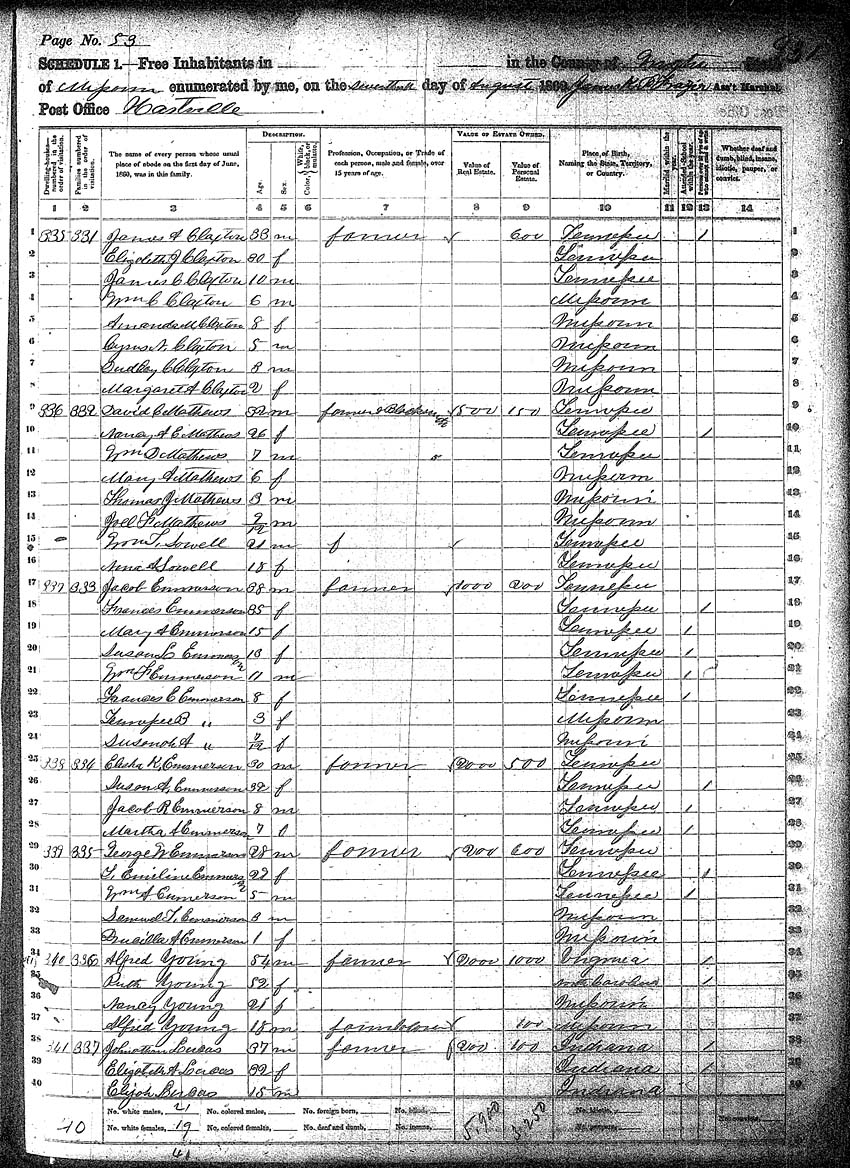 Page No. 53
SCHEDULE 1.—Free Inhabitants in in the County of State
of Missouri enumerated by me, on the Seventh day of August 1860. Ass't Marshal.
Post Office Hartville
DESCRIPTION. VALUE OF ESTATE OWNED.
Dwelling-houses—numbered in the order of visitation. Families numbered in the order of visitation. The name of every person whose usual place of abode on the first day of June, 1860, was in this family. Age. Sex. Color, White, black, or mulatto. Profession, Occupation, or Trade of each person, male and female, over 15 years of age. Value of Real Estate. Value of Personal Estate. Place of Birth, Naming the State, Territory, or Country. Married within the year. Attended School within the year. Whether deaf and dumb, blind, insane, idiotic, pauper, or convict.
1 2 3 4 5 6 7 8 9 10 11 12 13 14
1 335 331 James A Claxton 33 m farmer 600 Tennessee 1 1
2 Elizabeth J Claxton 30 f Tennessee 2
3 James C Claxton 10 m Tennessee 3
4 Wm C Claxton 6 m Missouri 4
5 Amanda M Claxton 8 f Missouri 5
6 Cyrus N Claxton 5 m Missouri 6
7 Dudley C Claxton 3 m Missouri 7
8 Margaret A Claxton 2 f Missouri 8
9 336 332 David C Mathews 32 m farmer & Blacksmith 500 150 Tennessee 9
10 Nancy A E Mathews 26 f Tennessee 1 10
11 Wm D Mathews 7 m Tennessee 11
12 Mary A Mathews 6 f Missouri 12
13 Thomas J Mathews 3 m Missouri 13
14 Joel F Mathews 9/12 m Missouri 14
15 Wm L Sowell 21 m f Tennessee 15
16 A Sowell 18 f Tennessee 16
17 337 333 Jacob Emmerson 38 m farmer 1000 200 Tennessee 17
18 Frances Emmerson 35 f Tennessee 1 18
19 Mary A Emmerson 15 f Tennessee 1 19
20 Susan C Emmerson 13 f Tennessee 1 20
21 Wm F Emmerson 11 m Tennessee 1 21
22 Frances E Emmerson 8 f Tennessee 1 22
23 Tennessee B " 3 f Missouri 23
24 Susanah A " 7/12 f Missouri 24
25 338 334 Elisha K Emmerson 30 m farmer 2000 500 Tennessee 25
26 Susan A Emmerson 32 f Tennessee 1 26
27 Jacob R Emmerson 8 m Tennessee 1 27
28 Martha A Emmerson 7 f Tennessee 1 28
29 339 335 George W Emmerson 28 m farmer 200 600 Tennessee 29
30 Emiline Emmerson 22 f Tennessee 1 30
31 Wm A Emmerson 5 m Tennessee 1 31
32 Samuel T Emmerson 3 m Missouri 32
33 A Emmerson 1 f Missouri 33
34 340 336 Alfred Young 54 m farmer 2000 1000 Virginia 1 34
35 Ruth Young 52 f North Carolina 1 35
36 Nancy Young 21 f Missouri 36
37 Alfred Young 18 m 100 Missouri 37
38 341 337 Johnathan Lucas 37 m farmer 200 100 Indiana 1 38
39 Elizabeth A Lucas 32 f Indiana 1 39
40 Elijah Lucas 15 m Indiana 40
40 No. white males, 21 No. colored males, No. foreign born, No. blind, 5,900 3,250 No. idiotic, No. convicts,
No. white females, 19 No. colored females, No. deaf and dumb, No. insane, No. paupers,